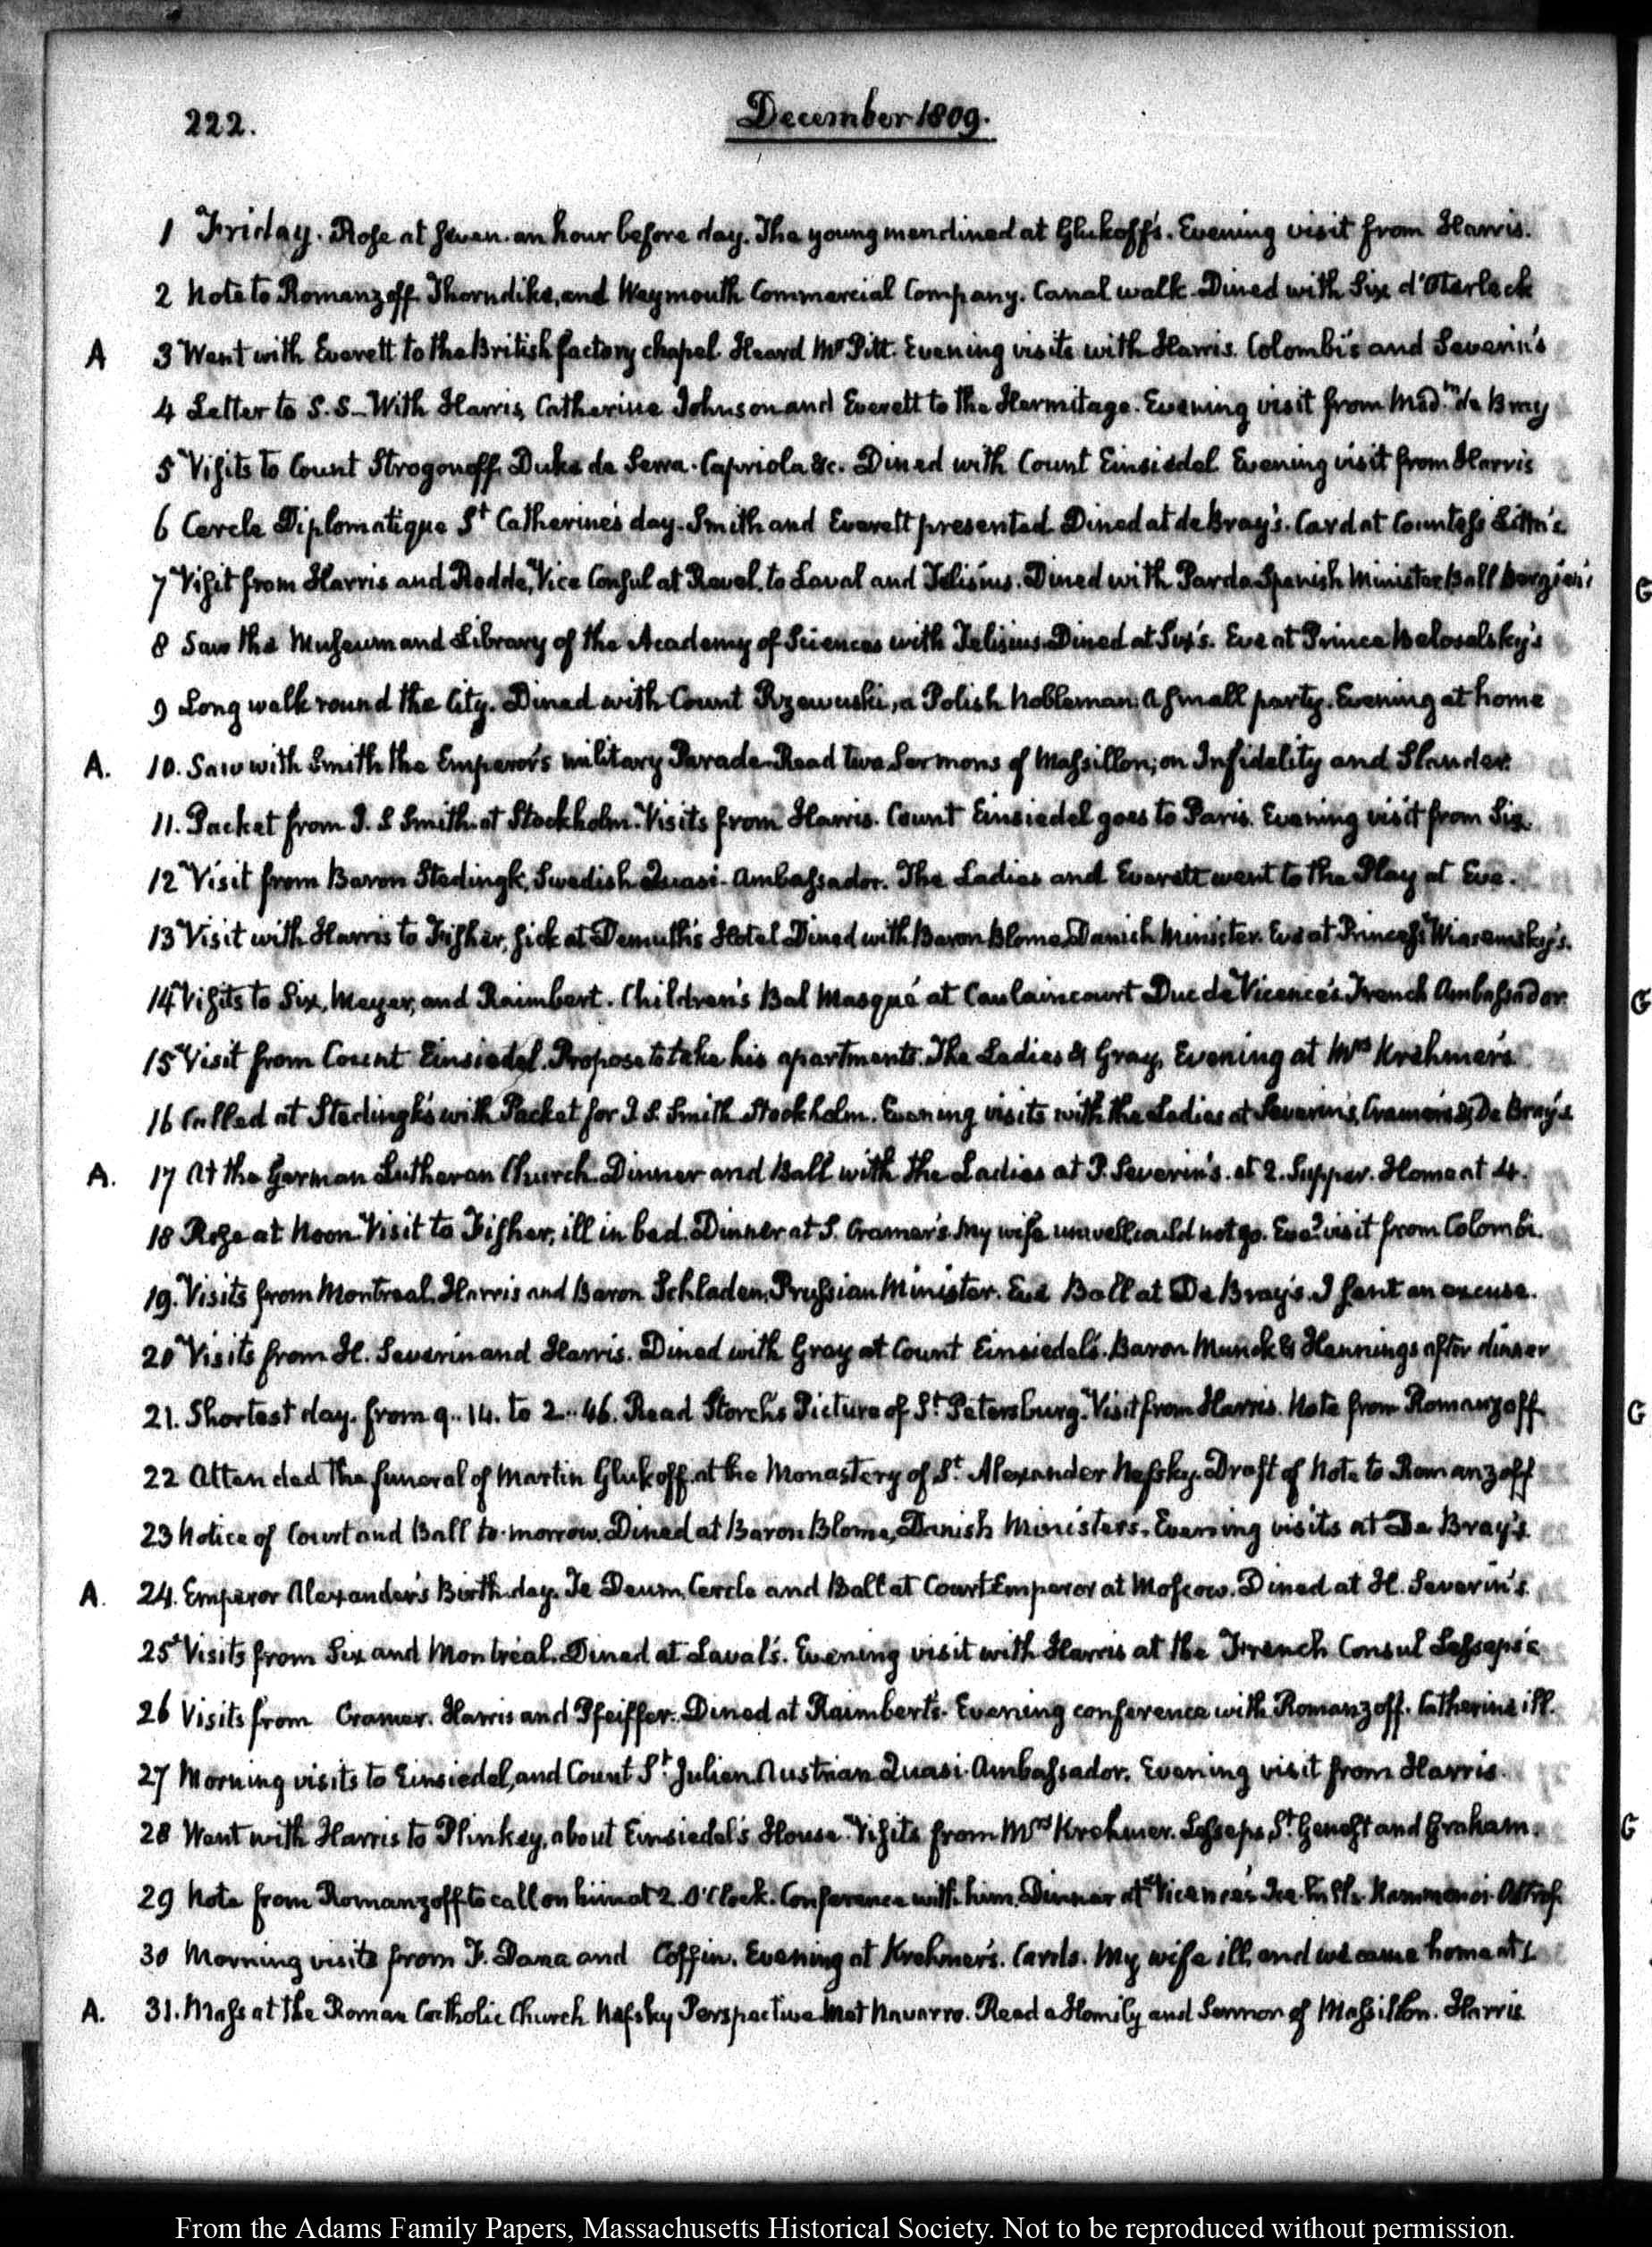 222.
December 1809.
1 Friday. Rose at seven. an hour before day. The young men dined at Glukoff's. Evening visit from Harris.
2 Note to Romanzoff. Thorndike, and Weymouth Commercial Company. Canal walk. Dined with Six d'Oterbeck
A 3 Went with Everett to the British factory chapel. Heard Mr Pitt. Evening visits with Harris. Colombi's and Severin's
4 Letter to S.S. With Harris, Catherine Johnson and Everett to the Hermitage. Evening visit from Madme de Bray
5 Visits to Count Strogonoff. Duke de Serra-Capriola &c. Dined with Count Einsiedel. Evening visit from Harris
6 Cercle Diplomatique St Catherine's day. Smith and Everett presented. Dined at de Bray's. Card at Countess Litta's
7 Visit from Harris and Rodde, Vice Consul at Revel. to Laval and Telisius. Dined with Pardo Spanish Minister. Ball
8 Saw the Museum and Library of the Academy of Sciences with Telisius. Dined at Six's. Eve at Prince Beloselsky's
9 Long walk round the City. Dined with Count Rzewuski, a Polish Nobleman. A small party. Evening at home
A. 10. Saw with Smith the Emperor's military Parade. Read two Sermons of Massillon; on Infidelity and Slander.
11. Packet from J. S Smith at Stockholm. Visits from Harris. Count Einsiedel goes to Paris. Evening visit from Six.
12 Visit from Baron Stedingk, Swedish Quasi-Ambassador. The Ladies and Everett went to the Play at Eve.
13 Visit with Harris to Fisher, sick at Demuth's Hotel. Dined with Baron Blome, Danish Minister. Eve at Princess Wiasemsky's.
14 Visits to Six, Meyer, and Raimbert. Children's Bal Masqué at Caulaincourt Duc de Vicence's French Ambassador
15 Visit from Count Einsiedel. Propose to take his apartments. The Ladies & Gray, Evening at Mrs Krehmer's
16 Called at Stedingk's with Packet for J. S. Smith Stockholm. Evening visits with the Ladies at Severin's, Cramer's & De Bray's
A. 17 At the German Lutheran Church. Dinner and Ball with the Ladies at P. Severin's. at 2. Supper. Home at 4.
18 Rose at Noon. Visit to Fisher, ill in bed. Dinner at S. Cramer's. My wife unwell could not go. Eveg visit from Colombi.
19. Visits from Montreal, Harris and Baron Schladen, Prussian Minister. Eve Ball at De Bray's. I sent an excuse.
20 Visits from H. Severin and Harris. Dined with Gray at Count Einsiedel's. Baron Munck & Hennings after dinner
21. Shortest day. from 9..14. to 2..46. Read Storch's Picture of St Petersburg. Visit from Harris. Note from Romanzoff
22 Attended the funeral of Martin Glukoff. at the Monastery of St Alexander Nefsky. Draft of Note to Romanzoff
23 Notice of Court and Ball to-morrow. Dined at Baron Blome, Danish Ministers. Evening visits at De Bray's
A. 24. Emperor Alexander's Birth-day. Te Deum, Cercle and Ball at Court. Emperor at Moscow. Dined at H. Severin's
25 Visits from Six and Montréal. Dined at Laval's. Evening visit with Harris at the French Consul Lesseps's
26 Visits from Cramer. Harris and Pfeiffer. Dined at Raimbert's. Evening conference with Romanzoff. Catherine ill.
27 Morning visits to Einsiedel, and Count St Julien. Austrian Quasi-Ambassador. Evening visit from Harris.
28 Went with Harris to Plinkey, about Einsiedel's House. Visits from Mrs Krehmer. Lesseps, St Genest and Graham.
29 Note from Romanzoff to call on him at 2. O'Clock. Conference with him. Dinner at Vicence's Kammenoi Ostrof
30 Morning visits from F. Dana and Coffin. Evening at Krehmer's. Cards. My wife ill, and we came home at 1.
A. 31. Mass at the Roman Catholic Church Nefsky Perspective. Met Navarro. Read a Homily and Sermon of Massillon. Harris
From the Adams Family Papers, Massachusetts Historical Society. Not to be reproduced without permission.